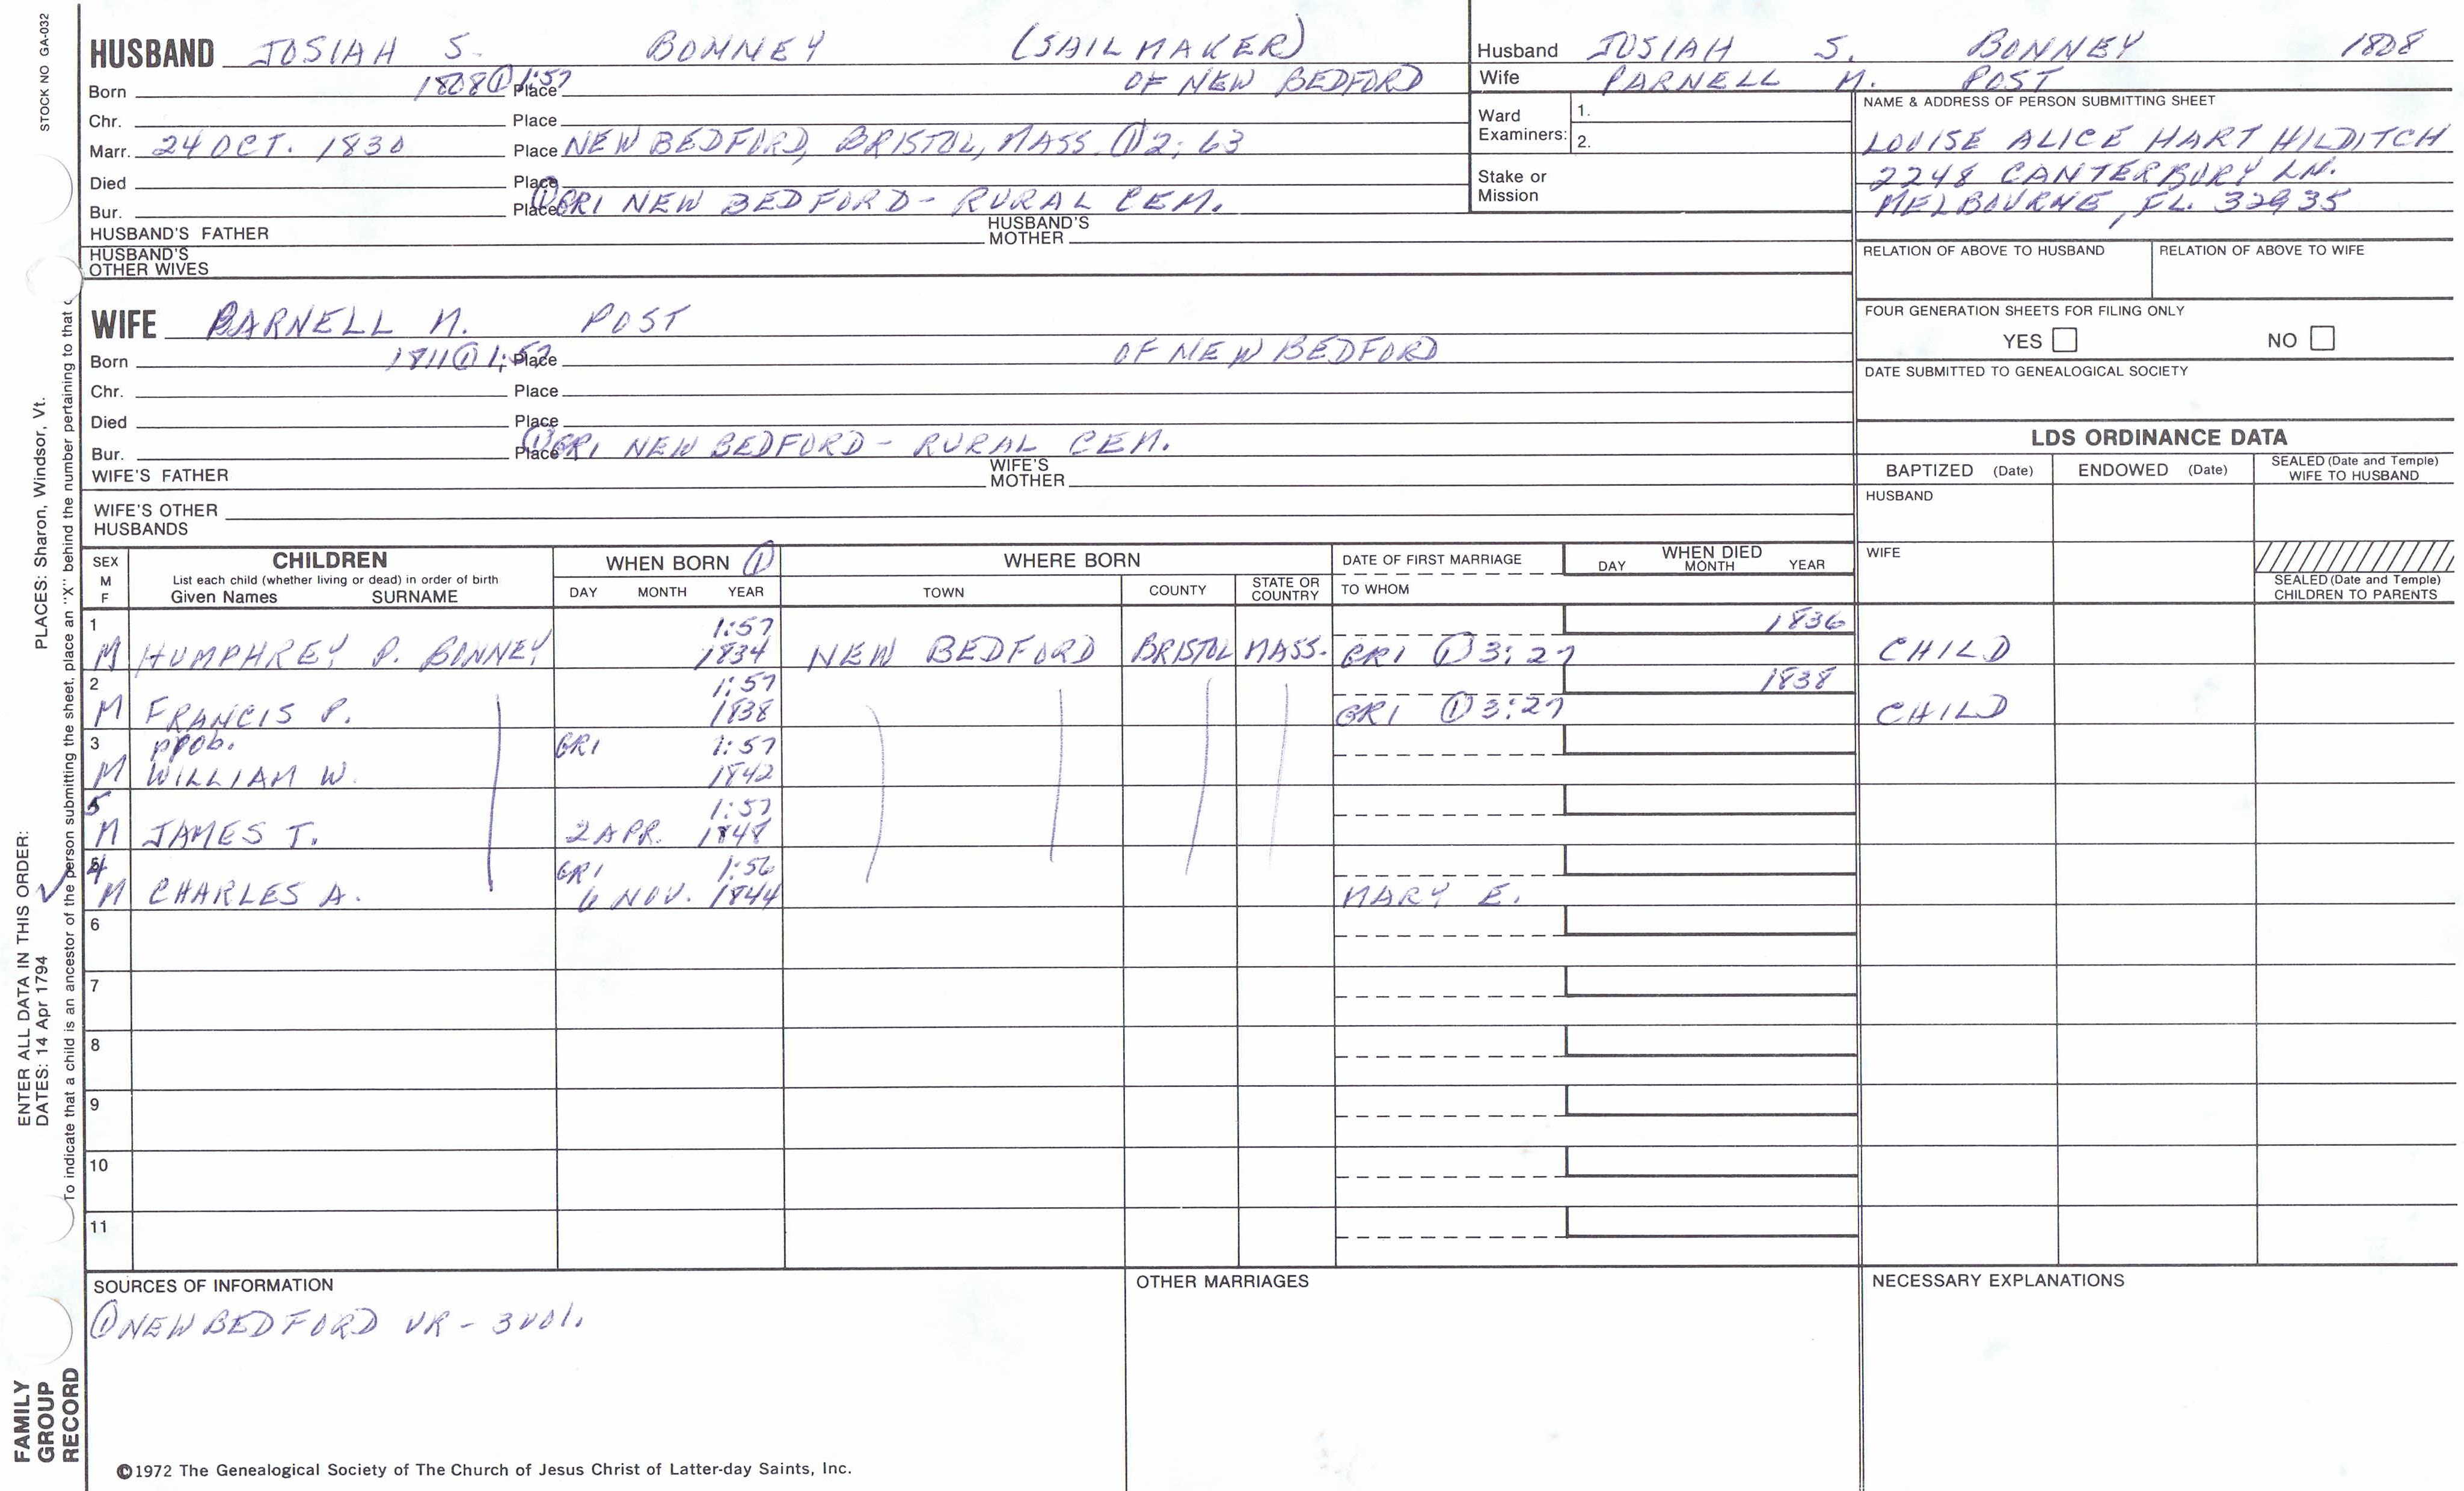 STOCK NO GA-032
HUSBAND JOSIAH S. BONNEY (SAILMAKER)
Born 1808 ① 1:57 Place OF NEW BEDFORD
Chr. Place
Marr. 24 OCT. 1830 Place NEW BEDFORD, BRISTOL, MASS. ① 2:63
Died Place
Bur. Place ① GRI NEW BEDFORD - RURAL CEM.
HUSBAND'S FATHER HUSBAND'S MOTHER
HUSBAND'S OTHER WIVES
Husband JOSIAH S. BONNEY 1808
Wife PARNELL M. POST
Ward Examiners: 1.
2.
Stake or Mission
NAME & ADDRESS OF PERSON SUBMITTING SHEET
LOUISE ALICE HART HILDITCH
2248 CANTERBURY LN.
MELBOURNE, FL. 32935
RELATION OF ABOVE TO HUSBAND RELATION OF ABOVE TO WIFE
FOUR GENERATION SHEETS FOR FILING ONLY
YES NO
DATE SUBMITTED TO GENEALOGICAL SOCIETY
WIFE PARNELL M. POST
Born 1811 ① 1:57 Place OF NEW BEDFORD
Chr. Place
Died Place
Bur. Place ① GRI NEW BEDFORD - RURAL CEM.
WIFE'S FATHER WIFE'S MOTHER
WIFE'S OTHER HUSBANDS
LDS ORDINANCE DATA
BAPTIZED (Date) ENDOWED (Date) SEALED (Date and Temple) WIFE TO HUSBAND
HUSBAND
WIFE
SEALED (Date and Temple) CHILDREN TO PARENTS
SEX M F
CHILDREN
List each child (whether living or dead) in order of birth
Given Names SURNAME
WHEN BORN ①
DAY MONTH YEAR
WHERE BORN
TOWN COUNTY STATE OR COUNTRY
DATE OF FIRST MARRIAGE
TO WHOM
WHEN DIED
DAY MONTH YEAR
1 1:57 1836
M HUMPHREY P. BONNEY 1834 NEW BEDFORD BRISTOL MASS. GRI ① 3:27 CHILD
2 1:57 1838
M FRANCIS P. 1838 GRI ① 3:27 CHILD
3 prob. GRI 1:57
M WILLIAM W. 1842
5 1:57
M JAMES T. 2 APR. 1848
4 GRI 1:56
M CHARLES A. 6 NOV. 1844 MARY E.
6
7
8
9
10
11
SOURCES OF INFORMATION
① NEW BEDFORD VR - 3 vol.
OTHER MARRIAGES
NECESSARY EXPLANATIONS
©1972 The Genealogical Society of The Church of Jesus Christ of Latter-day Saints, Inc.
FAMILY GROUP RECORD
ENTER ALL DATA IN THIS ORDER:
DATES: 14 Apr 1794
PLACES: Sharon, Windsor, Vt.
To indicate that a child is an ancestor of the person submitting the sheet, place an "X" behind the number pertaining to that